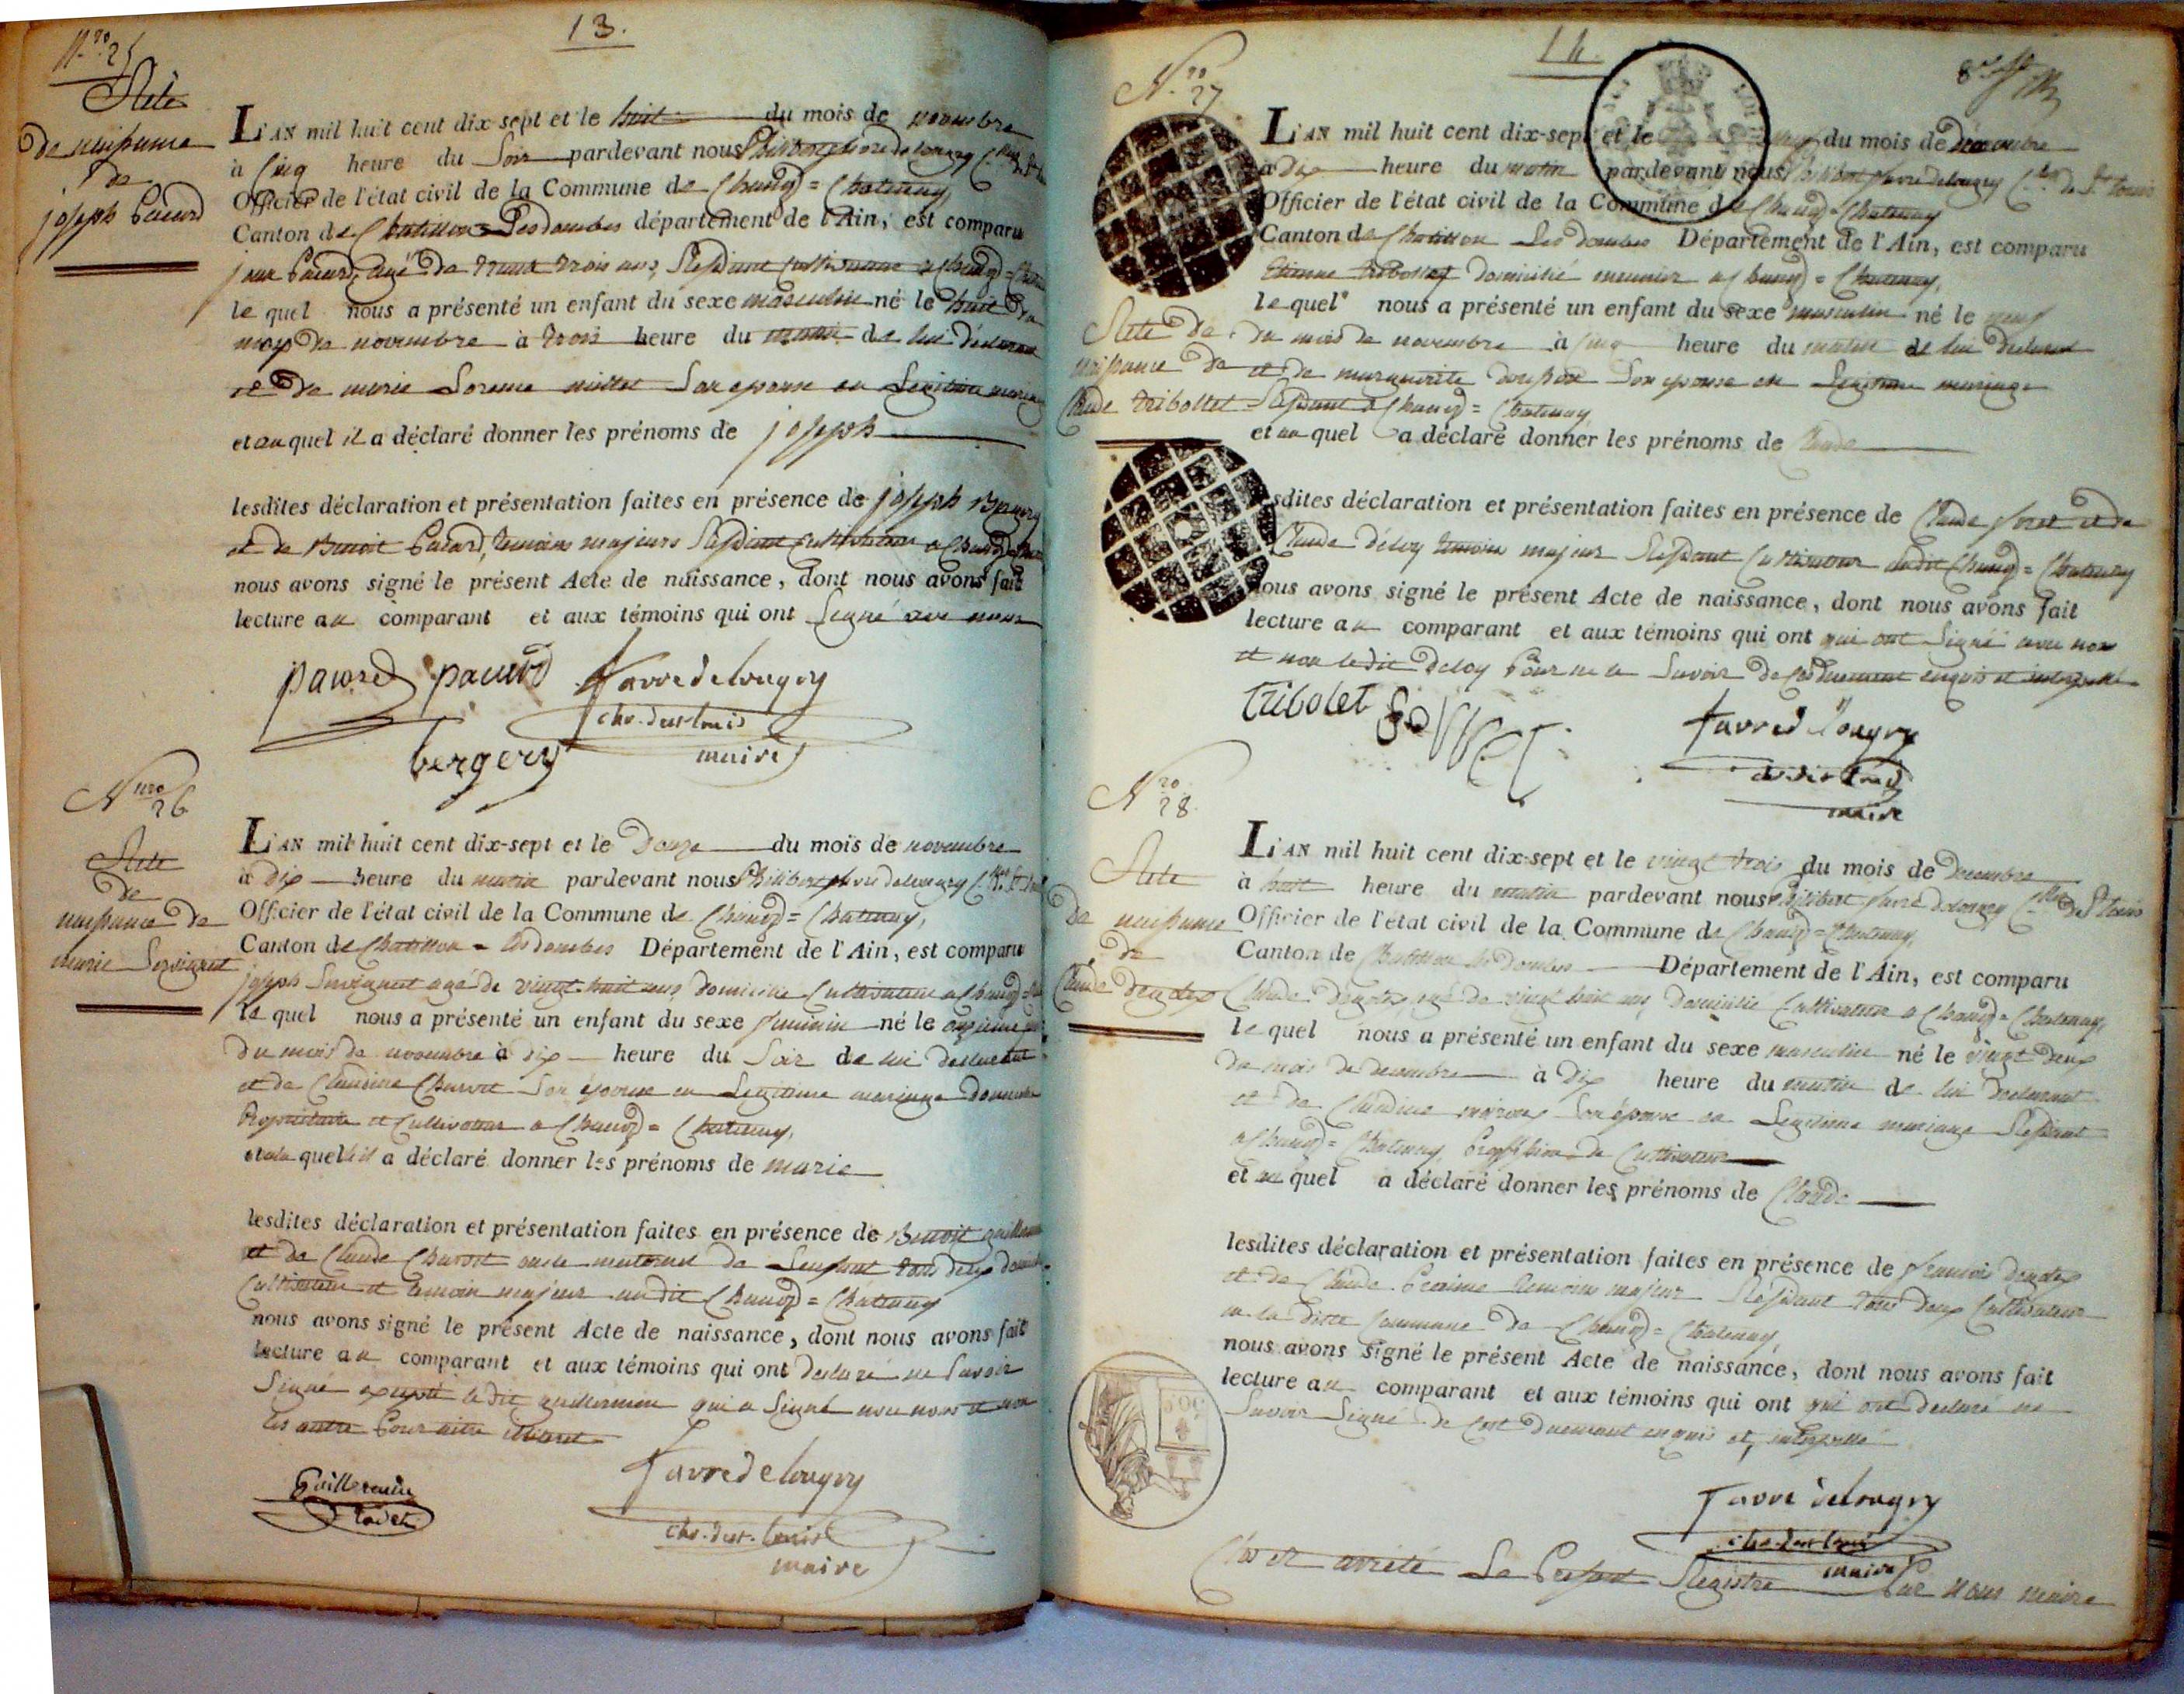 13.
N.ro 25
Acte
de naissance
de
joseph Pacard
L'AN mil huit cent dix-sept et le huit du mois de novembre
à Cinq heure du Soir pardevant nous Philibert favre de longry
Officier de l'état civil de la Commune de Chanoz = Chatenay,
Canton de Chatillon = Les dombes département de l'Ain, est comparu
jean Pacard, agé de trente trois ans, Résidant Cultivateur a Chanoz =
le quel nous a présenté un enfant du sexe masculin né le huit du
mois de novembre à trois heure du matin de lui déclarant
et de marie Lorence millet Son epouse en Legitime mariage
et au quel il a déclaré donner les prénoms de joseph
lesdites déclaration et présentation faites en présence de joseph Bergery
et de Benoit Pacard, temoins majeurs Résidant Cultivateur a Chanoz
nous avons signé le présent Acte de naissance, dont nous avons fait
lecture au comparant et aux témoins qui ont Signé avec nous
pacard pacard favre de longry
chr. de st. louis
bergery maire
Nuro 26
Acte
de
naissance de
marie Servignat
L'AN mil huit cent dix-sept et le Douze du mois de novembre
à dix heure du matin pardevant nous Philibert favre de longry
Officier de l'état civil de la Commune de Chanoz = Chatenay,
Canton de Chatillon = les dombes Département de l'Ain, est comparu
joseph Servignat agé de vingt huit ans, domicilié Cultivateur a Chanoz
le quel nous a présenté un enfant du sexe feminin né le onzieme
du mois de novembre à dix heure du Soir de lui declarant
et de Claudine Chavot Son épouse en Legitime mariage
Propriétaire et Cultivateur a Chanoz = Chatenay,
et a la quelle il a déclaré donner les prénoms de marie
lesdites déclaration et présentation faites en présence de Benoit
et de Claude Chavot oncle maternel de Lenfant tous deux
Cultivateur et temoin majeur audit Chanoz = Chatenay
nous avons signé le présent Acte de naissance, dont nous avons fait
lecture au comparant et aux témoins qui ont declaré ne Savoir
Signé excepté ledit guillermin qui a Signé avec nous et non
les autre Pour
Guillermin favre de longry
cadet chr. de st. louis
maire
14.
N.ro 27
Acte de
naissance de
Claude tribollet
L'AN mil huit cent dix-sept et le du mois de
à Dix heure du matin pardevant nous Philibert favre de longry de St. Louis
Officier de l'état civil de la Commune de Chanoz = Chatenay
Canton de Chatillon Les dombes Département de l'Ain, est comparu
Etienne tribollet domicilié meunier a Chanoz = Chatenay,
le quel nous a présenté un enfant du sexe masculin né le neuf
du mois de novembre à Cinq heure du matin de lui declarant
et de marguerite Son epouse en Legitime mariage
Résidant a Chanoz = Chatenay,
et au quel a déclaré donner les prénoms de Claude
lesdites déclaration et présentation faites en présence de Claude foret et de
Claude déloy temoin majeur Résidant Cultivateur audit Chanoz = Chatenay
nous avons signé le présent Acte de naissance, dont nous avons fait
lecture au comparant et aux témoins qui ont qui ont Signé avec nous
et non ledit deloy Pour ne le Savoir de enquis et interpellé
tribolet favre de longry
chr. de st. louis
maire
N.ro 28.
Acte
de naissance
de
L'AN mil huit cent dix-sept et le vingt trois du mois de Decembre
à huit heure du matin pardevant nous Philibert favre de longry de St. Louis
Officier de l'état civil de la Commune de Chanoz = Chatenay,
Canton de Chatillon les dombes Département de l'Ain, est comparu
Claude agé de vingt huit ans, Domicilié Cultivateur a Chanoz = Chatenay,
le quel nous a présenté un enfant du sexe masculin né le vingt deux
du mois de decembre à dix heure du matin de lui declarant
et de Claudine Son épouse en Legitime mariage Résidant
a Chanoz = Chatenay, Profession de Cultivateur
et au quel a déclaré donner les prénoms de Claude
lesdites déclaration et présentation faites en présence de francois
et de Claude temoin majeur Résidant tous deux Cultivateur
en la ditte Commune de Chanoz = Chatenay
nous avons signé le présent Acte de naissance, dont nous avons fait
lecture au comparant et aux témoins qui ont qui ont declaré ne
Savoir Signé de enquis et interpellé
favre de longry
chr. de st. louis
maire
Clos et arrêté Le Present Registre Par nous maire